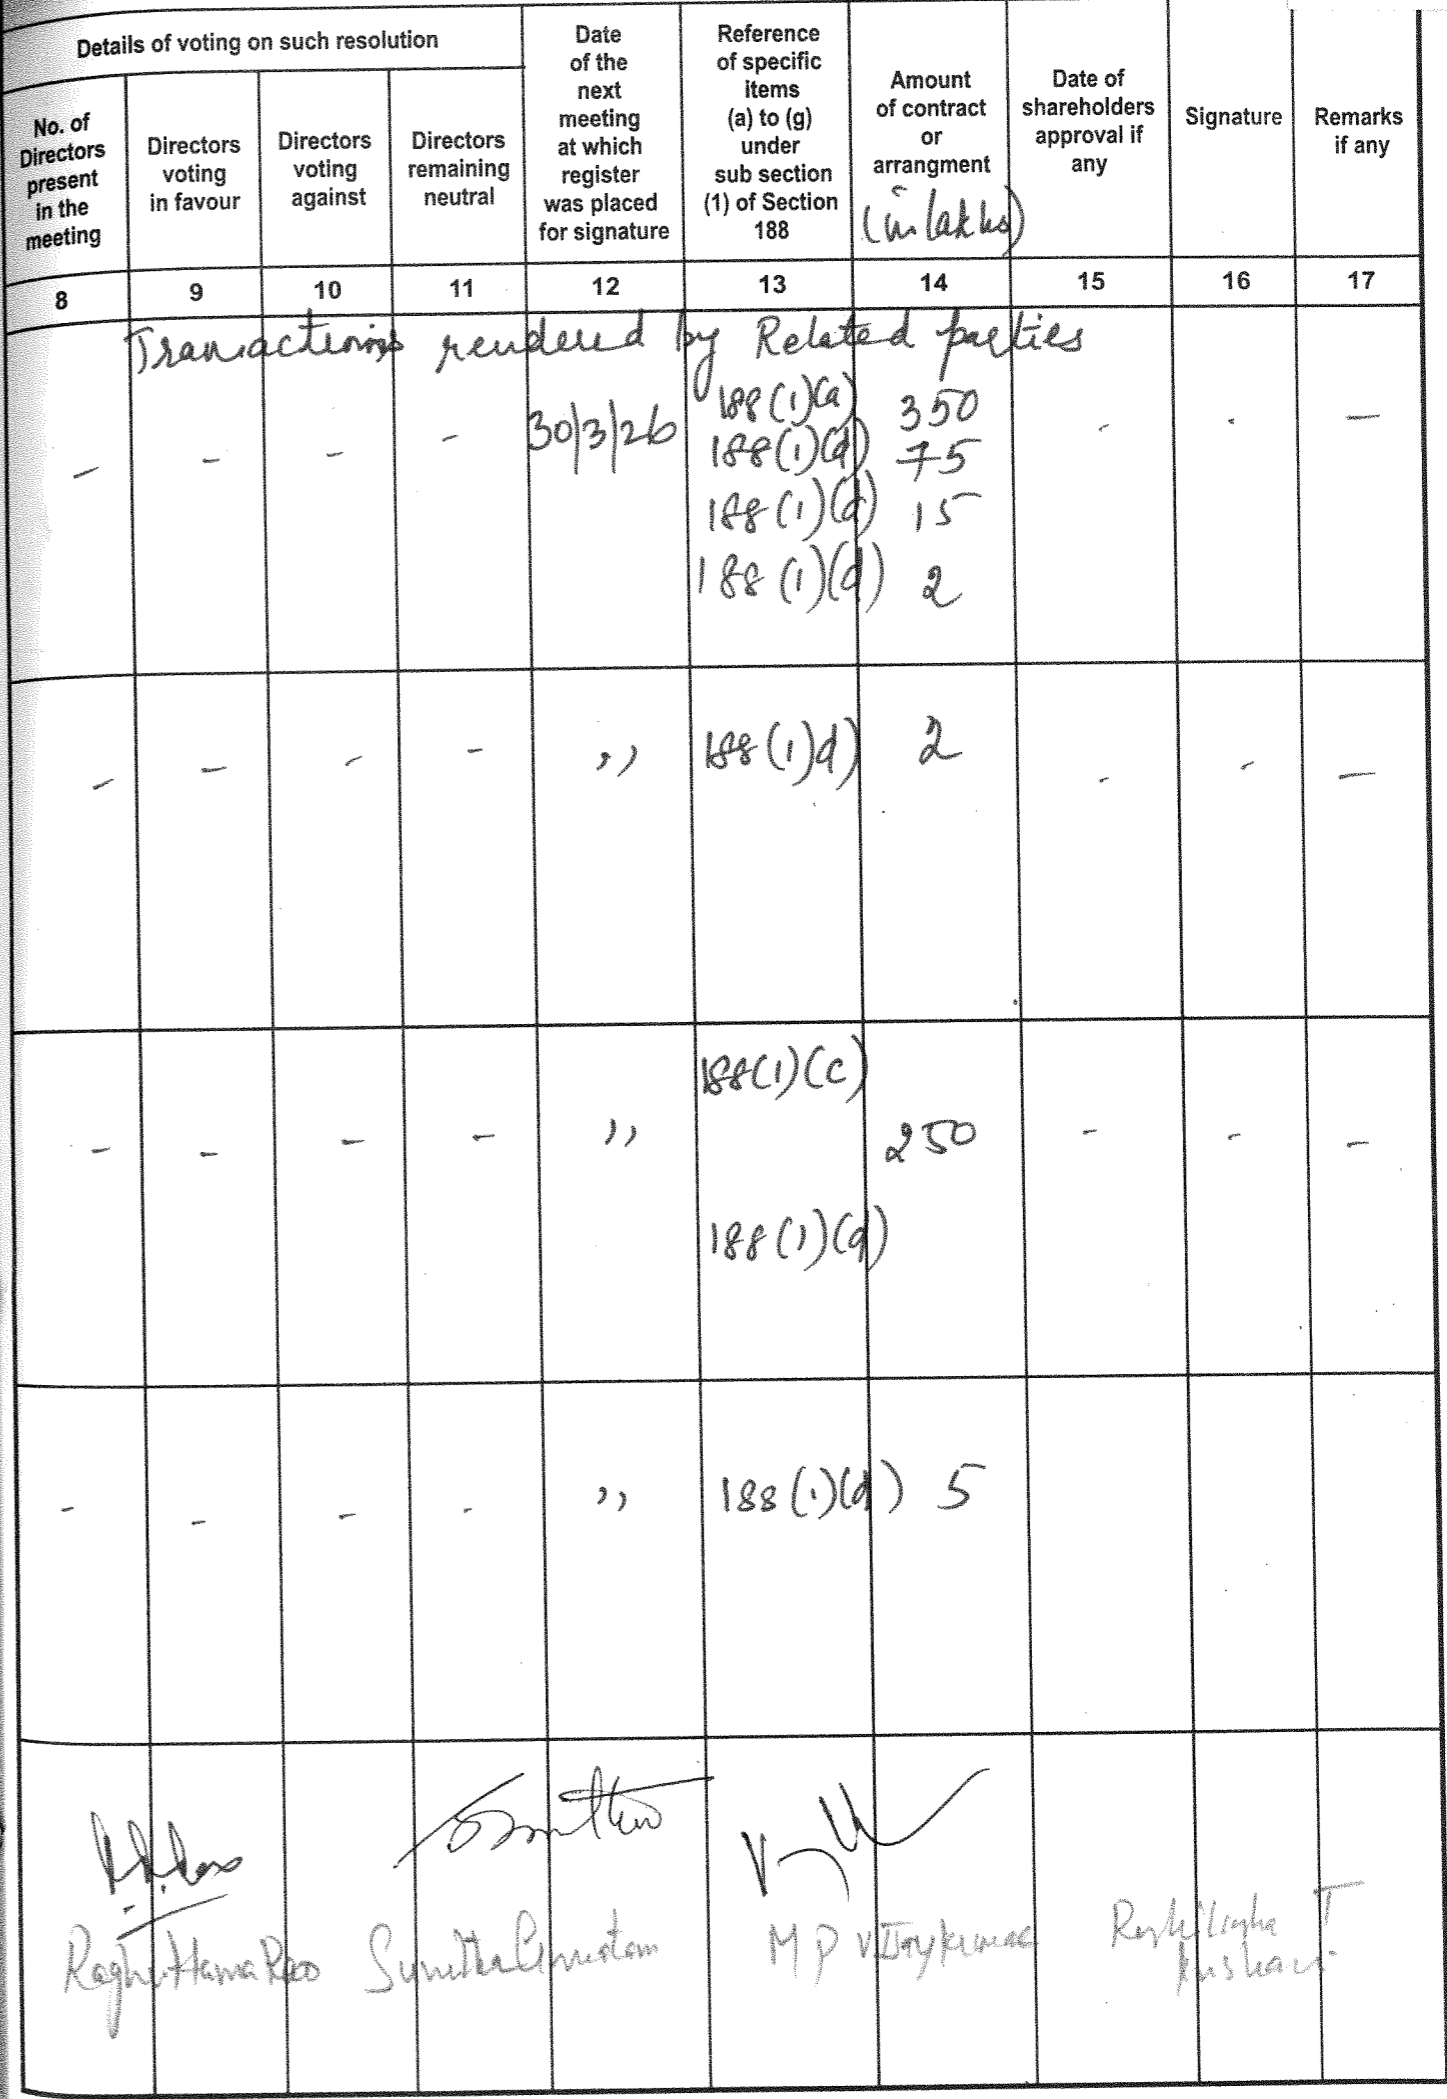 Details of voting on such resolution
No. of Directors present in the meeting
Directors voting in favour
Directors voting against
Directors remaining neutral
Date of the next meeting at which register was placed for signature
Reference of specific items (a) to (g) under sub section (1) of Section 188
Amount of contract or arrangment (in lakhs)
Date of shareholders approval if any
Signature
Remarks if any
8 9 10 11 12 13 14 15 16 17
Transactions rendered by Related parties
188(1)(a) 350
- - - - 30/3/26 188(1)(d) 75 - - -
188(1)(d) 15
188(1)(d) 2
- - - - ,, 188(1)d) 2 - - -
188(1)(c)
- - - - ,, 250 - - -
188(1)(d)
- - - - ,, 188(1)(d) 5
Sunitha
Raghu Hama Rao
M P